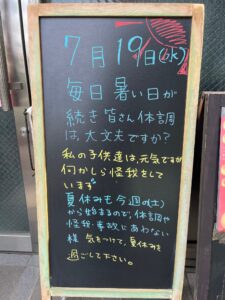 7月19日(水)
毎日暑い日が
続き皆さん体調
は、大丈夫ですか?
私の子供達は、元気ですが
何かしら怪我をして
います
夏休みも今週の(土)
から始まるので、体調や
怪我・事故にあわない
様 気をつけて、夏休みを
過ごして下さい。